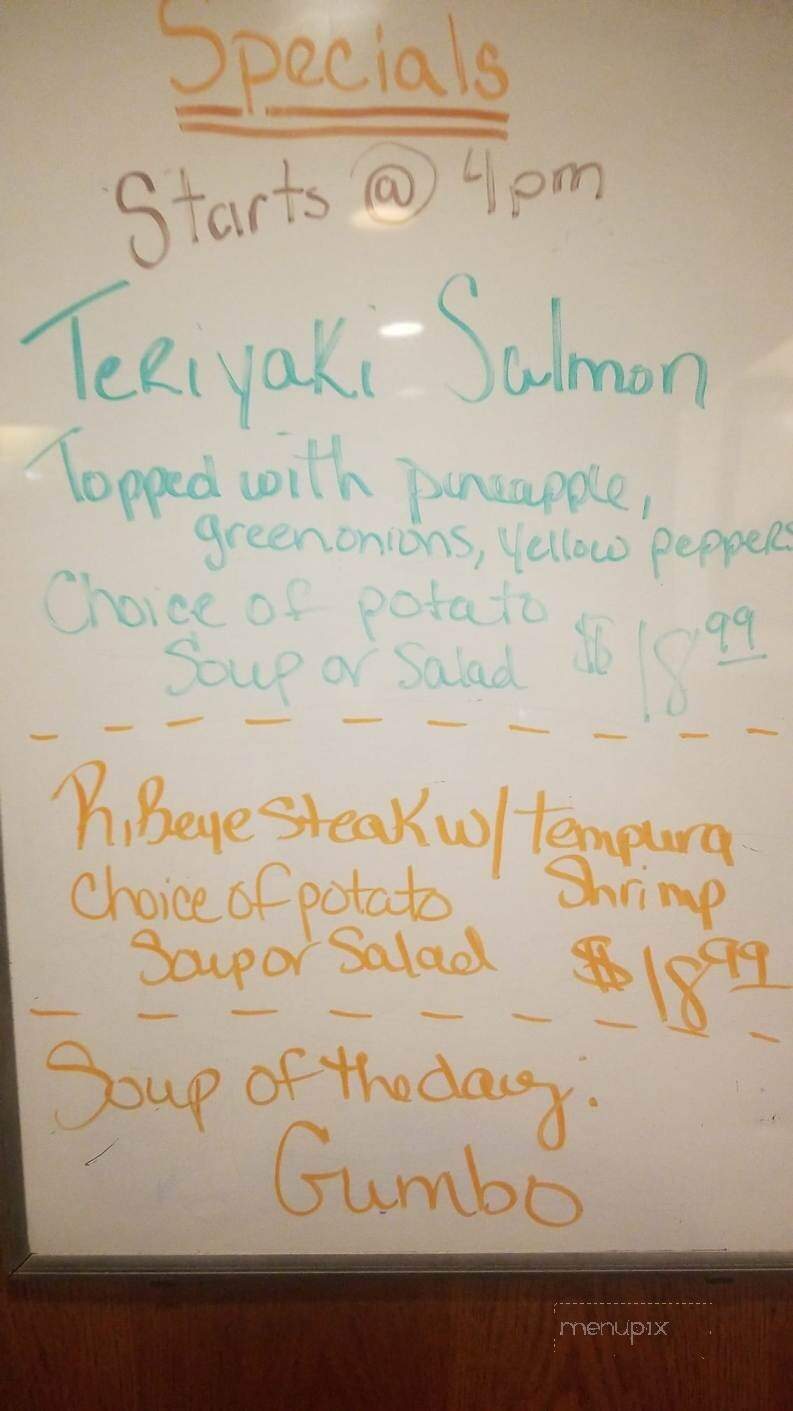 Specials
Starts @ 4pm
Teriyaki Salmon
Topped with pineapple,
green onions, yellow peppers
Choice of potato
Soup or Salad $18.99
Ribeye Steak w/ tempura
Choice of potato Shrimp
Soup or Salad $18.99
Soup of the day:
Gumbo
menupix